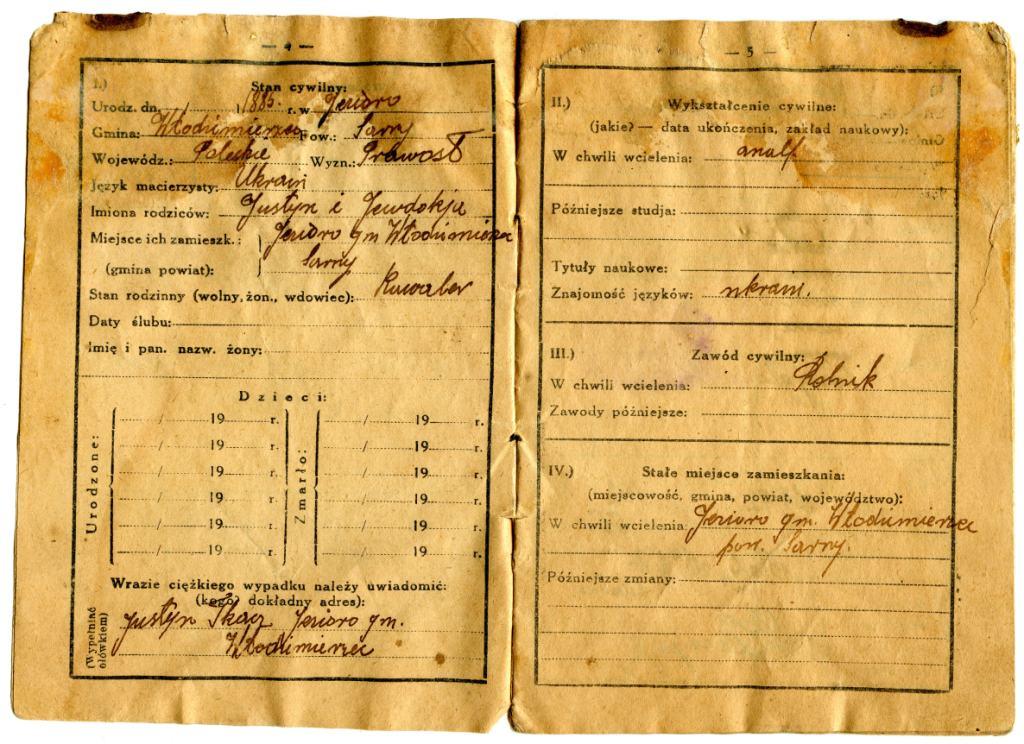 — 4 —
I.) Stan cywilny:
Urodz. dn. / 1885 r. w Jezioro
Gmina: Włodzimierzec Pow.: Sarny
Wojewódz.: Poleskie Wyzn.: Prawosł
Język macierzysty: Ukraiń
Imiona rodziców: Justyn i Jewdokja
Miejsce ich zamieszk.: Jezioro gm Włodzimierzec
(gmina powiat): Sarny
Stan rodzinny (wolny, żon., wdowiec): Kawaler
Daty ślubu:
Imię i pan. nazw. żony:
Dzieci:
Urodzone:
/ 19 r.
/ 19 r.
/ 19 r.
/ 19 r.
/ 19 r.
/ 19 r.
Zmarło:
/ 19 r.
/ 19 r.
/ 19 r.
/ 19 r.
/ 19 r.
/ 19 r.
Wrazie ciężkiego wypadku należy uwiadomić:
(kogo? dokładny adres):
(Wypełniać ołówkiem)
Justyn Tkacz Jezioro gm.
Włodzimierzec
— 5 —
II.) Wykształcenie cywilne:
(jakie? — data ukończenia, zakład naukowy):
W chwili wcielenia: analf
Późniejsze studja:
Tytuły naukowe:
Znajomość języków: ukraiń.
III.) Zawód cywilny:
W chwili wcielenia: Rolnik
Zawody późniejsze:
IV.) Stałe miejsce zamieszkania:
(miejscowość, gmina, powiat, województwo):
W chwili wcielenia: Jezioro gm. Włodzimierzec
pow. Sarny.
Późniejsze zmiany: